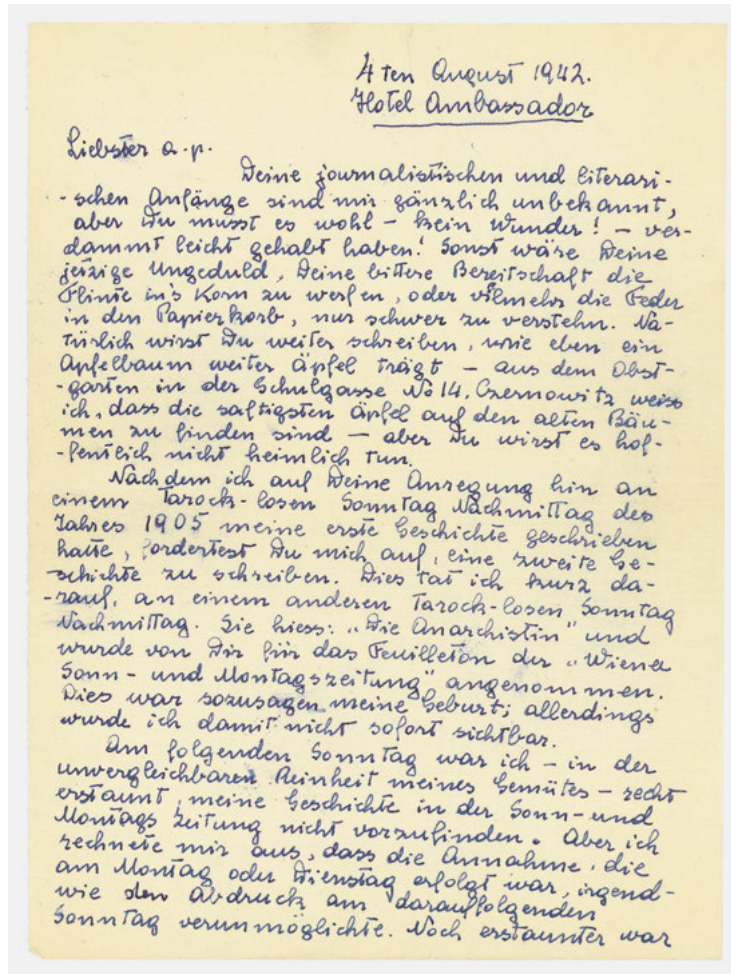 4 ten August 1942.
Hotel Ambassador
Liebster a.p.
Deine journalistischen und literari-
-schen Anfänge sind mir gänzlich unbekannt,
aber Du musst es wohl – kein Wunder! – ver-
dammt leicht gehabt haben! Sonst wäre Deine
jetzige Ungeduld, Deine bittere Bereitschaft die
Flinte in's Korn zu werfen, oder vilmehr die Feder
in den Papierkorb, nur schwer zu verstehn. Na-
türlich wirst Du weiter schreiben, wie eben ein
Apfelbaum weiter Äpfel trägt – aus dem Obst-
-garten in der Schulgasse No 14. Czernowitz weiss
ich, dass die saftigsten Äpfel auf den alten Bäu-
men zu finden sind – aber Du wirst es hof-
-fentlich nicht heimlich tun.
Nachdem ich auf Deine Anregung hin an
einem Tarock-losen Sonntag Nachmittag des
Jahres 1905 meine erste Geschichte geschrieben
hatte, fordertest Du mich auf, eine zweite Ge-
-schichte zu schreiben. Dies tat ich kurz da-
-rauf, an einem anderen Tarock-losen Sonntag
Nachmittag. Sie hiess: „Die Anarchistin" und
wurde von Dir für das Feuilleton der „Wiener
Sonn- und Montagszeitung" angenommen.
Dies war sozusagen meine Geburt; allerdings
wurde ich damit nicht sofort sichtbar.
Am folgenden Sonntag war ich – in der
unvergleichbaren Reinheit meines Gemütes – recht
erstaunt, meine Geschichte in der Sonn- und
Montags Zeitung nicht vorzufinden. Aber ich
rechnete mir aus, dass die Annahme, die
am Montag oder Dienstag erfolgt war, irgend-
wie den Abdruck am darauffolgenden
Sonntag verunmöglichte. Noch erstaunter war